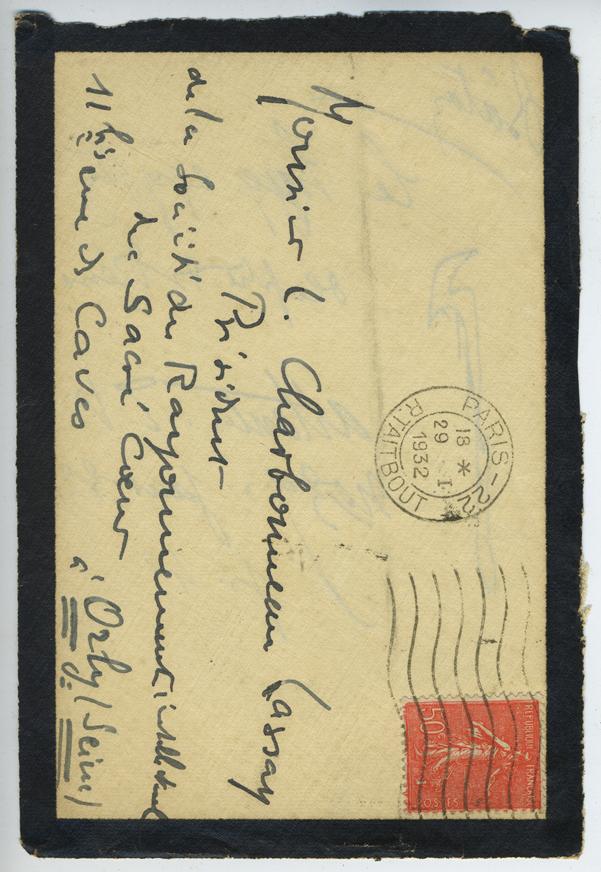 Monsieur L. Charbonneau Lassay
Président
de la Société du Rayonnement intellectuel
du Sacré Cœur
11 bis rue des Caves à Orly (Seine)
PARIS - 22
R. TAITBOUT
18 *
29 - I
1932
REPUBLIQUE FRANÇAISE
50c
POSTES